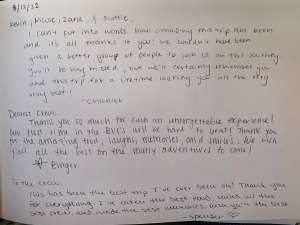 8/13/22
Kevin, Milwe, Zane, & Scottie,
I can't put into words how amazing this trip has been
and its all thanks to you! We couldn't have been
given a better group of people to join us on this journey
you'll be very missed, but we'll certainly remember you
and this trip for a lifetime wishing you all the very
very best!
- Chandler
Dearest Crew,
Thank you so much for such an unforgettable experience!
Our first time in the BVI's will be hard to beat! Thank you
for the amazing food, laughs, memories, and smiles. We wish
y'all all the best on the many adventures to come!
Binger
To the crew,
This has been the best trip I've ever been on! Thank you
for everything. I've eaten the best food, with the
best crew, and made the best memories. Love you'll the best
- Spenser